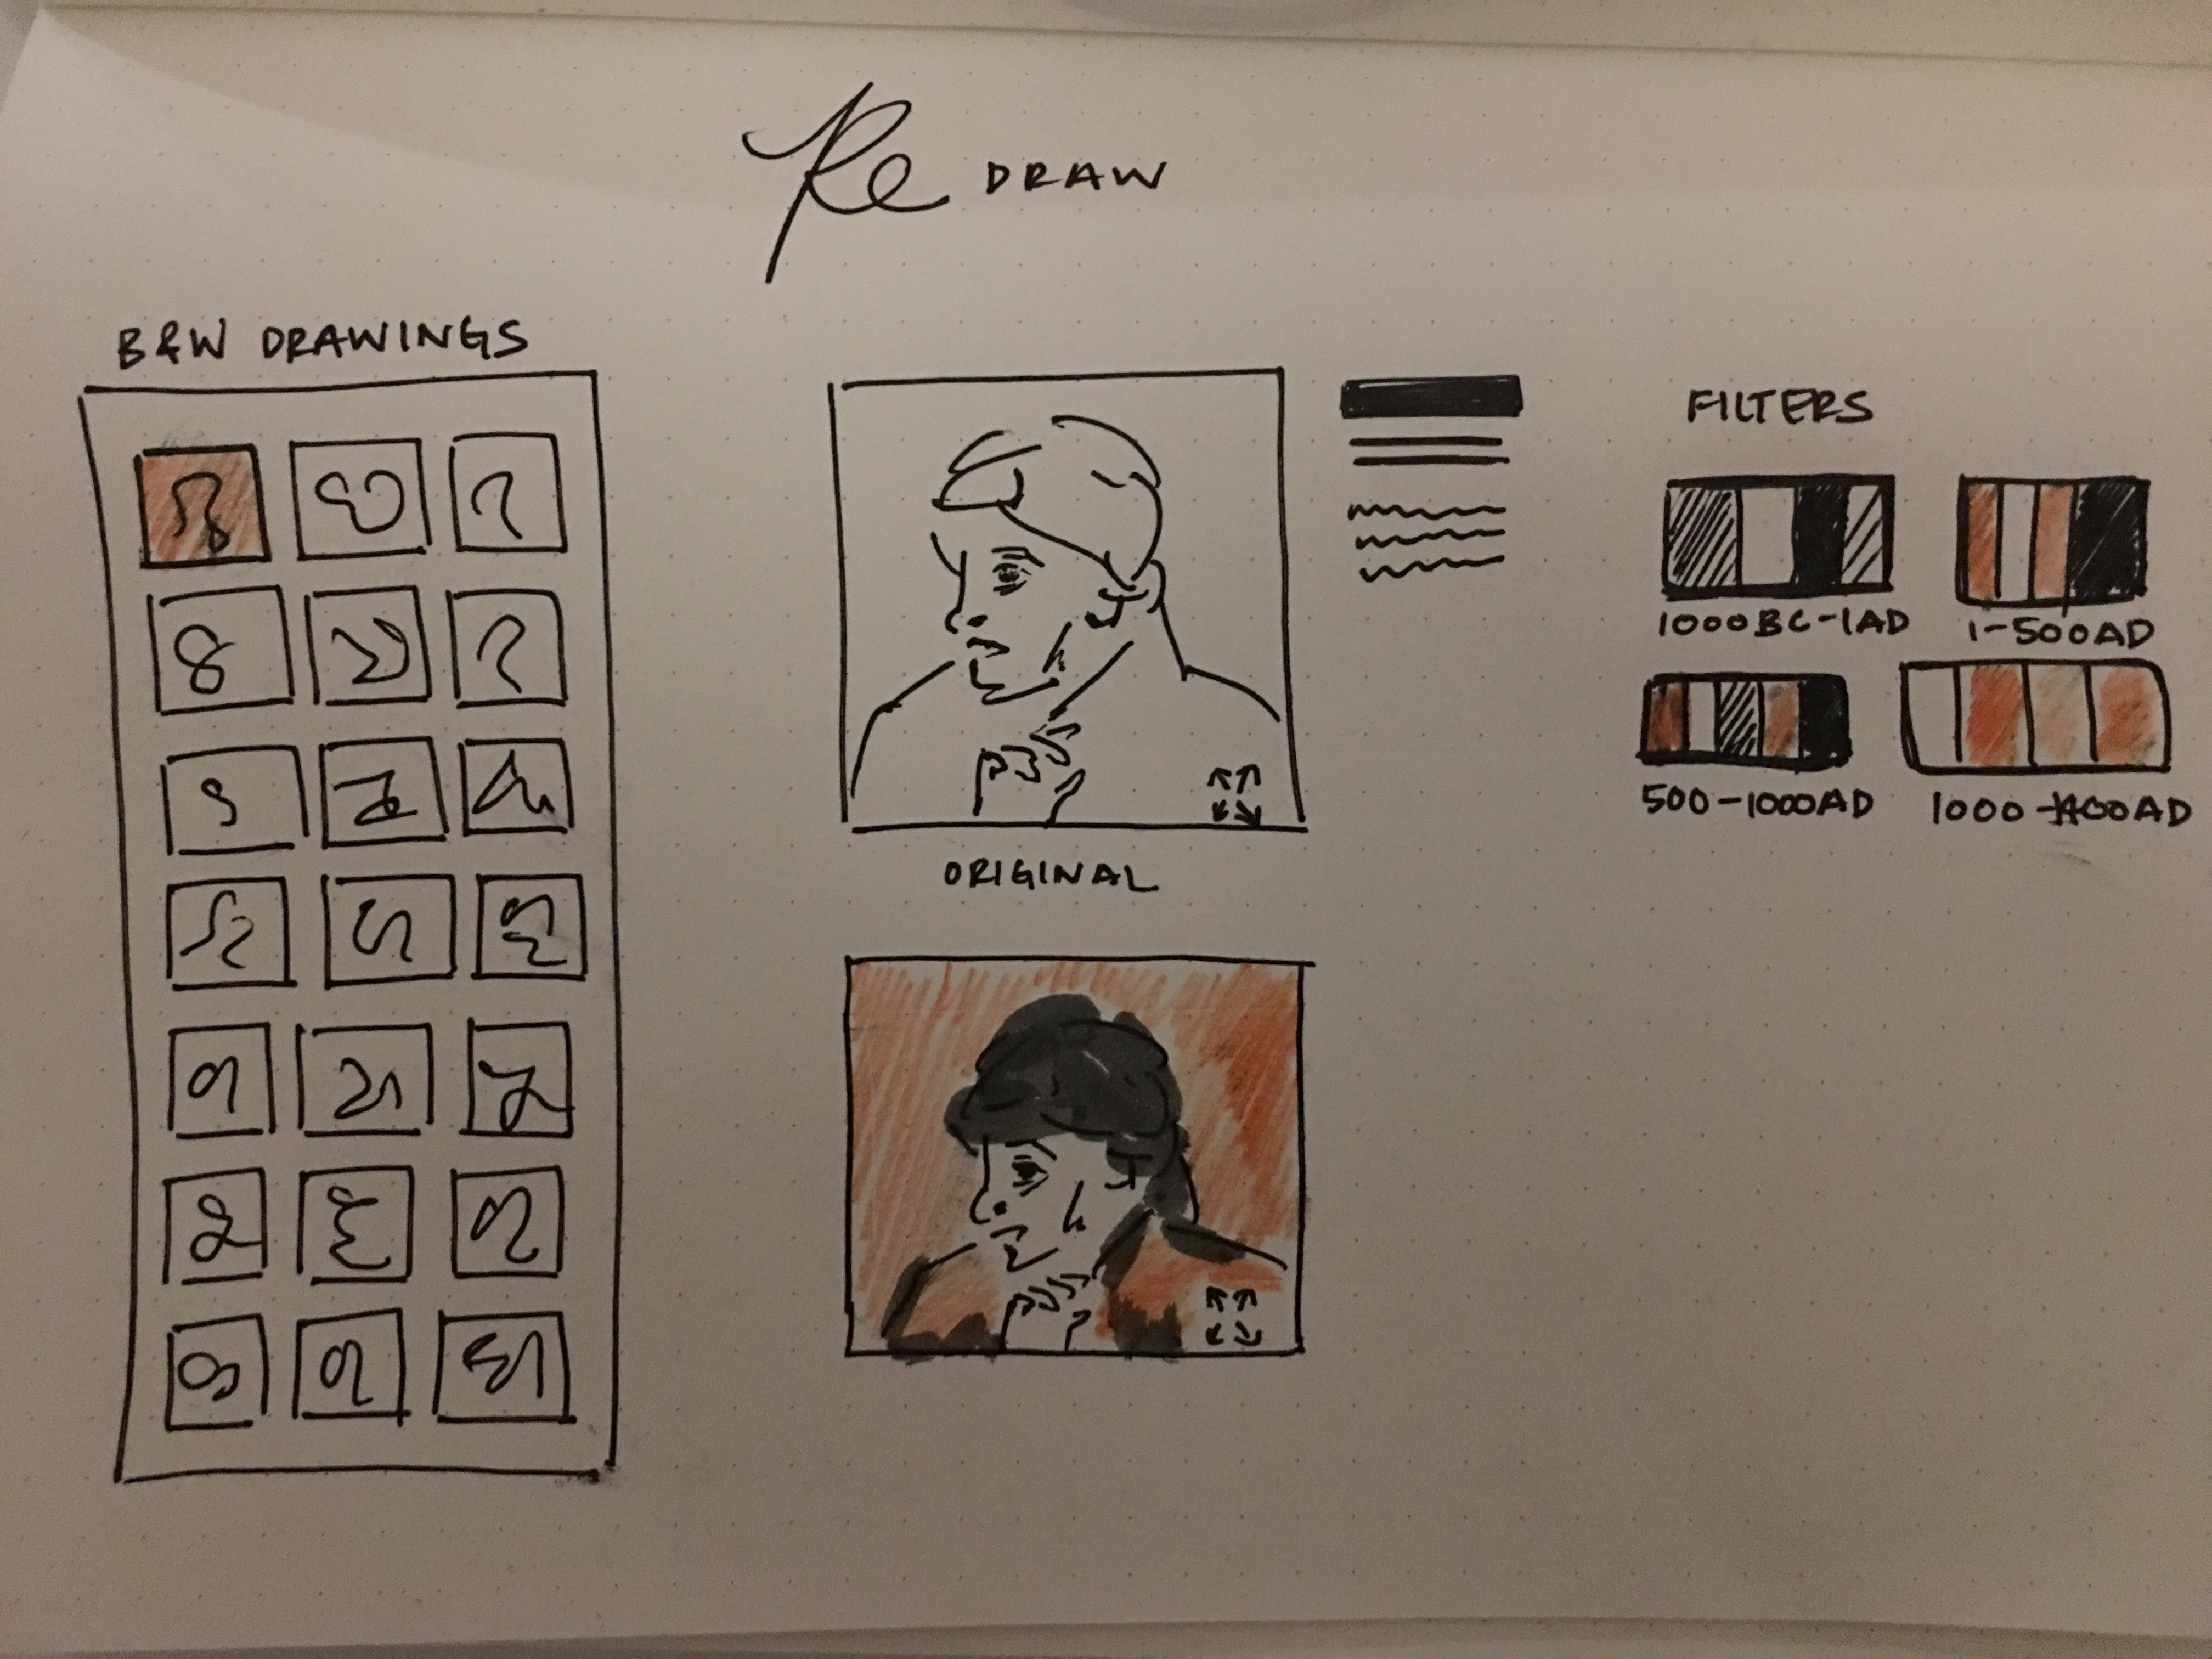 Re DRAW
B&W DRAWINGS
ORIGINAL
FILTERS
1000BC-1AD
1-500AD
500-1000AD
1000-1400AD